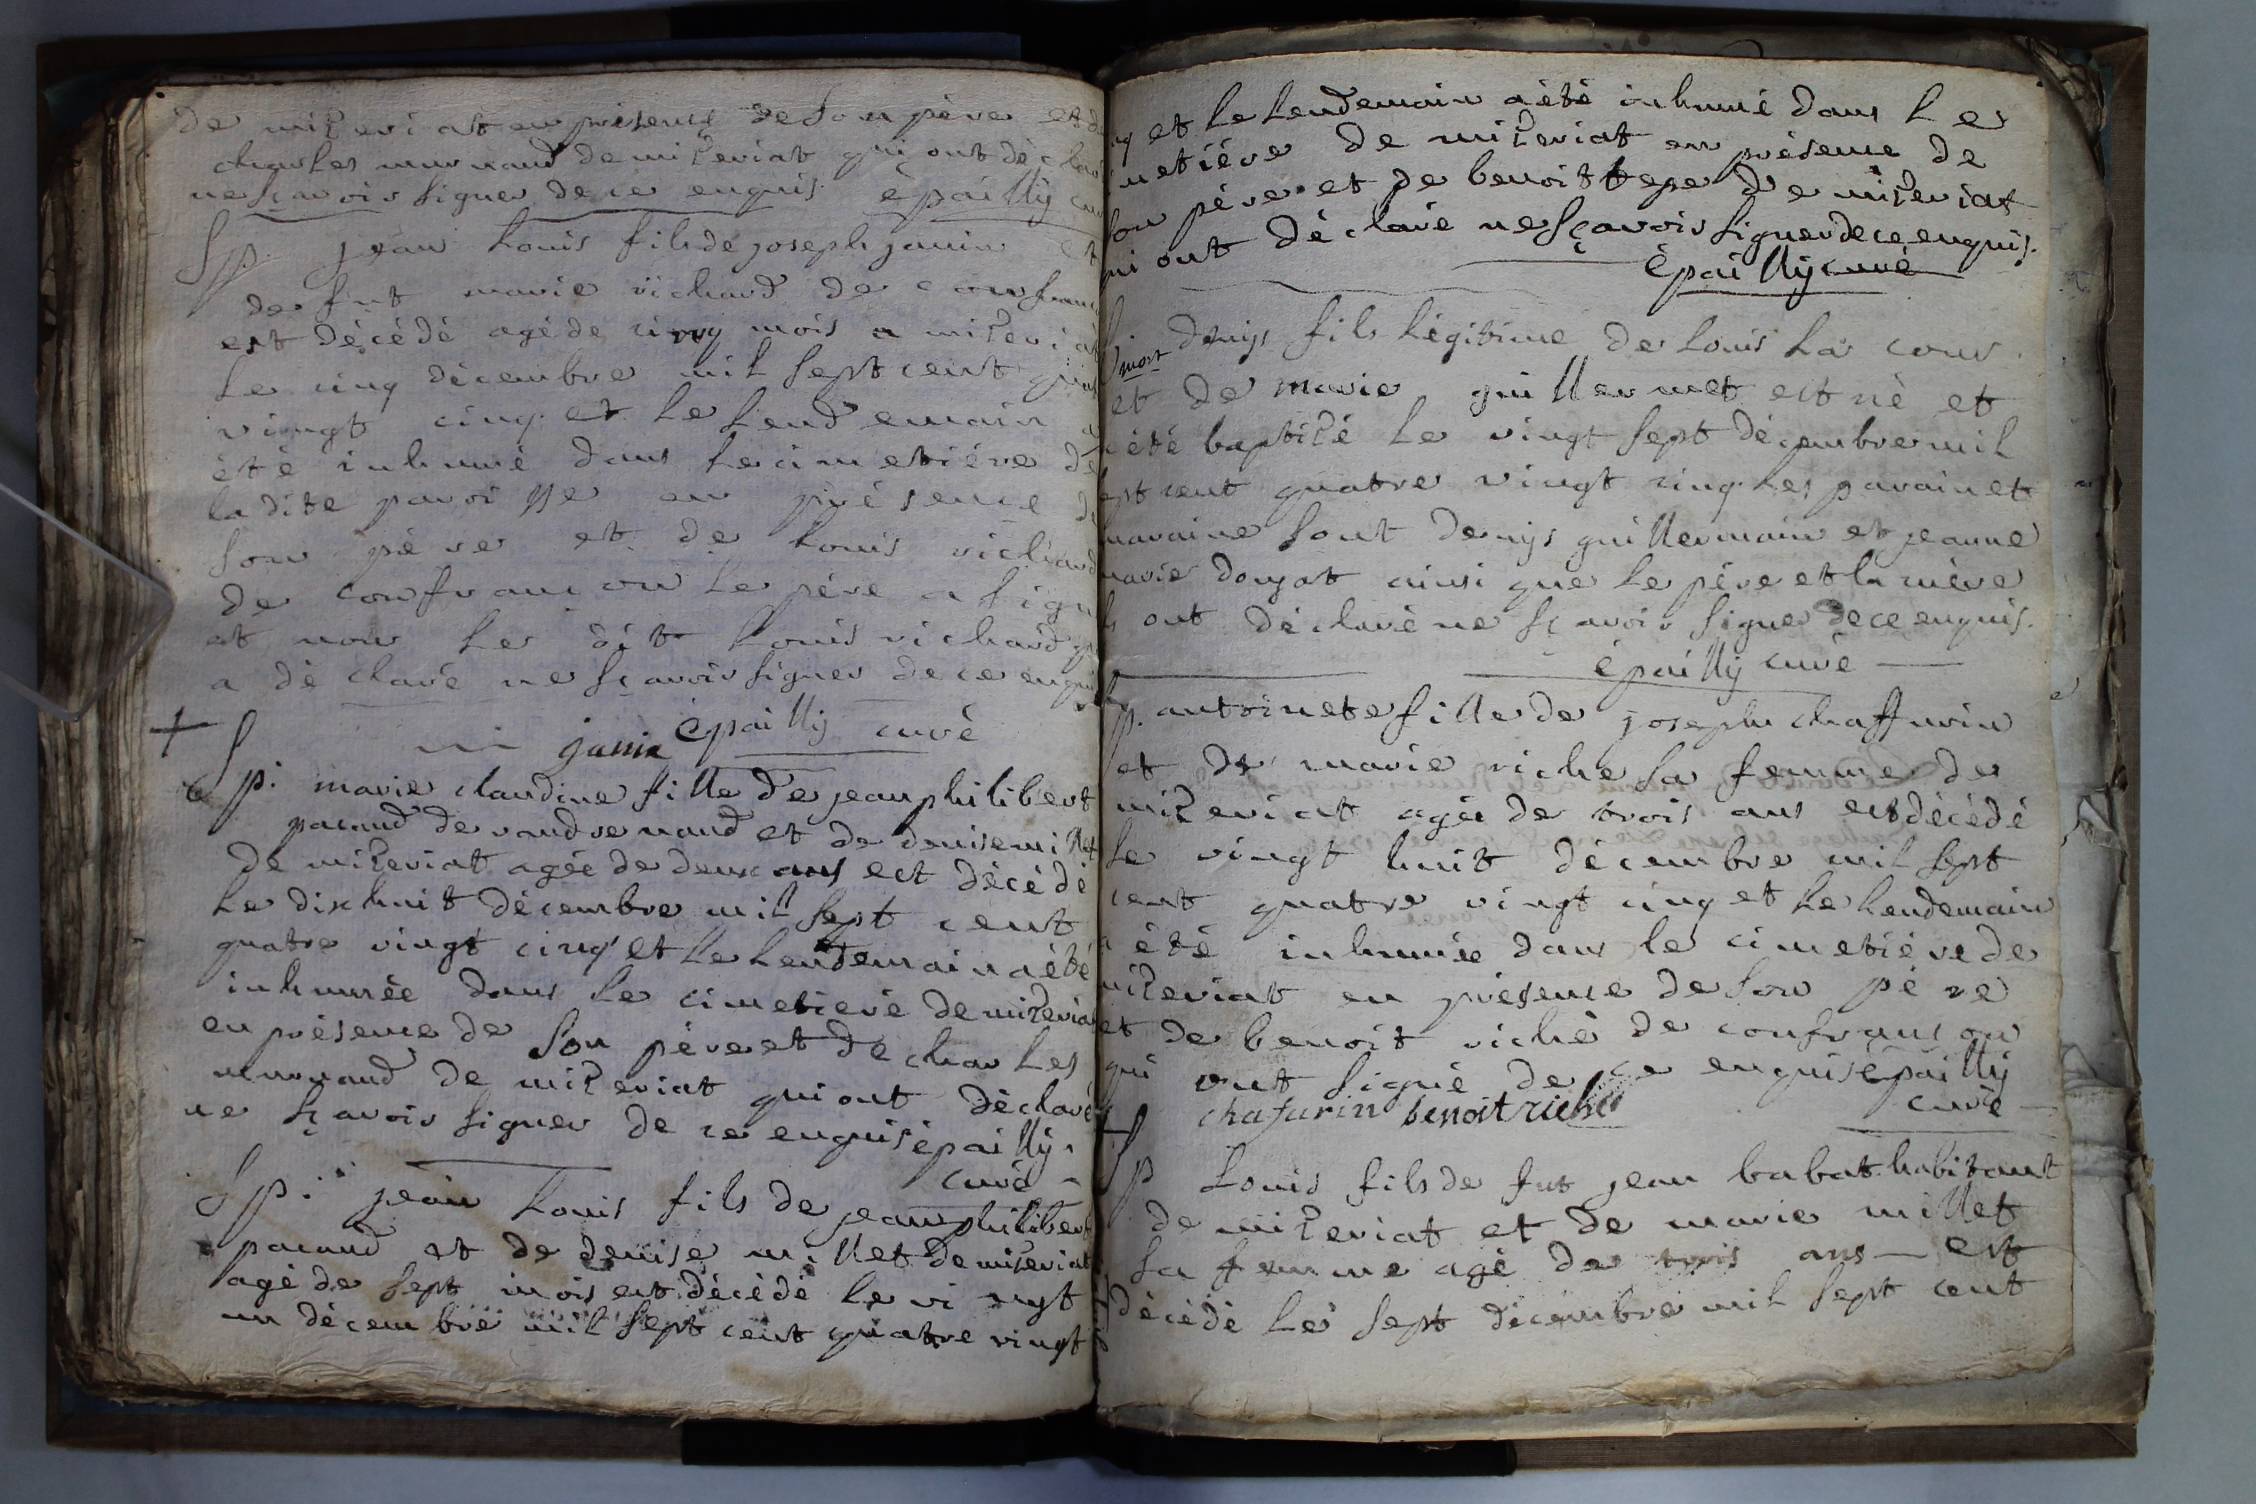 de mizeriat en présence de son père et de
charles murnaud de mizeriat qui ont déclaré
ne sçavoir signer de ce enquis épailly curé
Sp. jean louis fils de joseph janin et
de fut marie richard de confrançon
est décédé agé de cinq mois a mizeriat
le cinq décembre mil sept cent quatre
vingt cinq et le lendemain a
été inhumé dans le cimetière de
la dite paroisse en présence de
son père et de louis richard
de confrançon le père a signé
et non le dit louis richard qui
a déclaré ne sçavoir signer de ce enquis
janin épailly curé
Sp. marie claudine fille de jean philibert
pacaud de vandrenaud et de denise millet
de mizeriat agée de deux ans est décédé
le dixhuit décembre mil sept cent
quatre vingt cinq et le lendemain a été
inhumée dans le cimetiere de mizeriat
en présence de son père et de charles
murnaud de mizeriat qui ont déclaré
ne sçavoir signer de ce enquis épailly
curé
Sp. jean louis fils de jean philibert
pacaud et de denise millet de mizeriat
agé de sept mois est décédé le vingt
un décembre mil sept cent quatre vingt
cinq et le lendemain a été inhumé dans le
cimetière de mizeriat en présence de
son père et de benoit de mizeriat
qui ont déclaré ne sçavoir signer de ce enquis.
épailly curé
mort denys fils légitime de louis la cour
et de marie guillermet est né et
a été baptizé le vingt sept décembre mil
sept cent quatre vingt cinq les parain et
maraine sont denys guillermain et jeanne
marie donjat ainsi que le père et la mère
ils ont déclaré ne sçavoir signer de ce enquis.
épailly curé
Sp. antoinete fille de joseph chaffurin
et de marie riche sa femme de
mizeriat agée de trois ans est décédé
le vingt huit décembre mil sept
cent quatre vingt cinq et le lendemain
a été inhumée dans le cimetière de
mizeriat en présence de son père
et de benoit riche de confrançon
qui ont signé de ce enquis épailly
chafurin benoit riche curé
Sp louis fils de fut jean babat habitant
de mizeriat et de marie millet
sa femme agé de trois ans — est
décédé le sept décembre mil sept cent